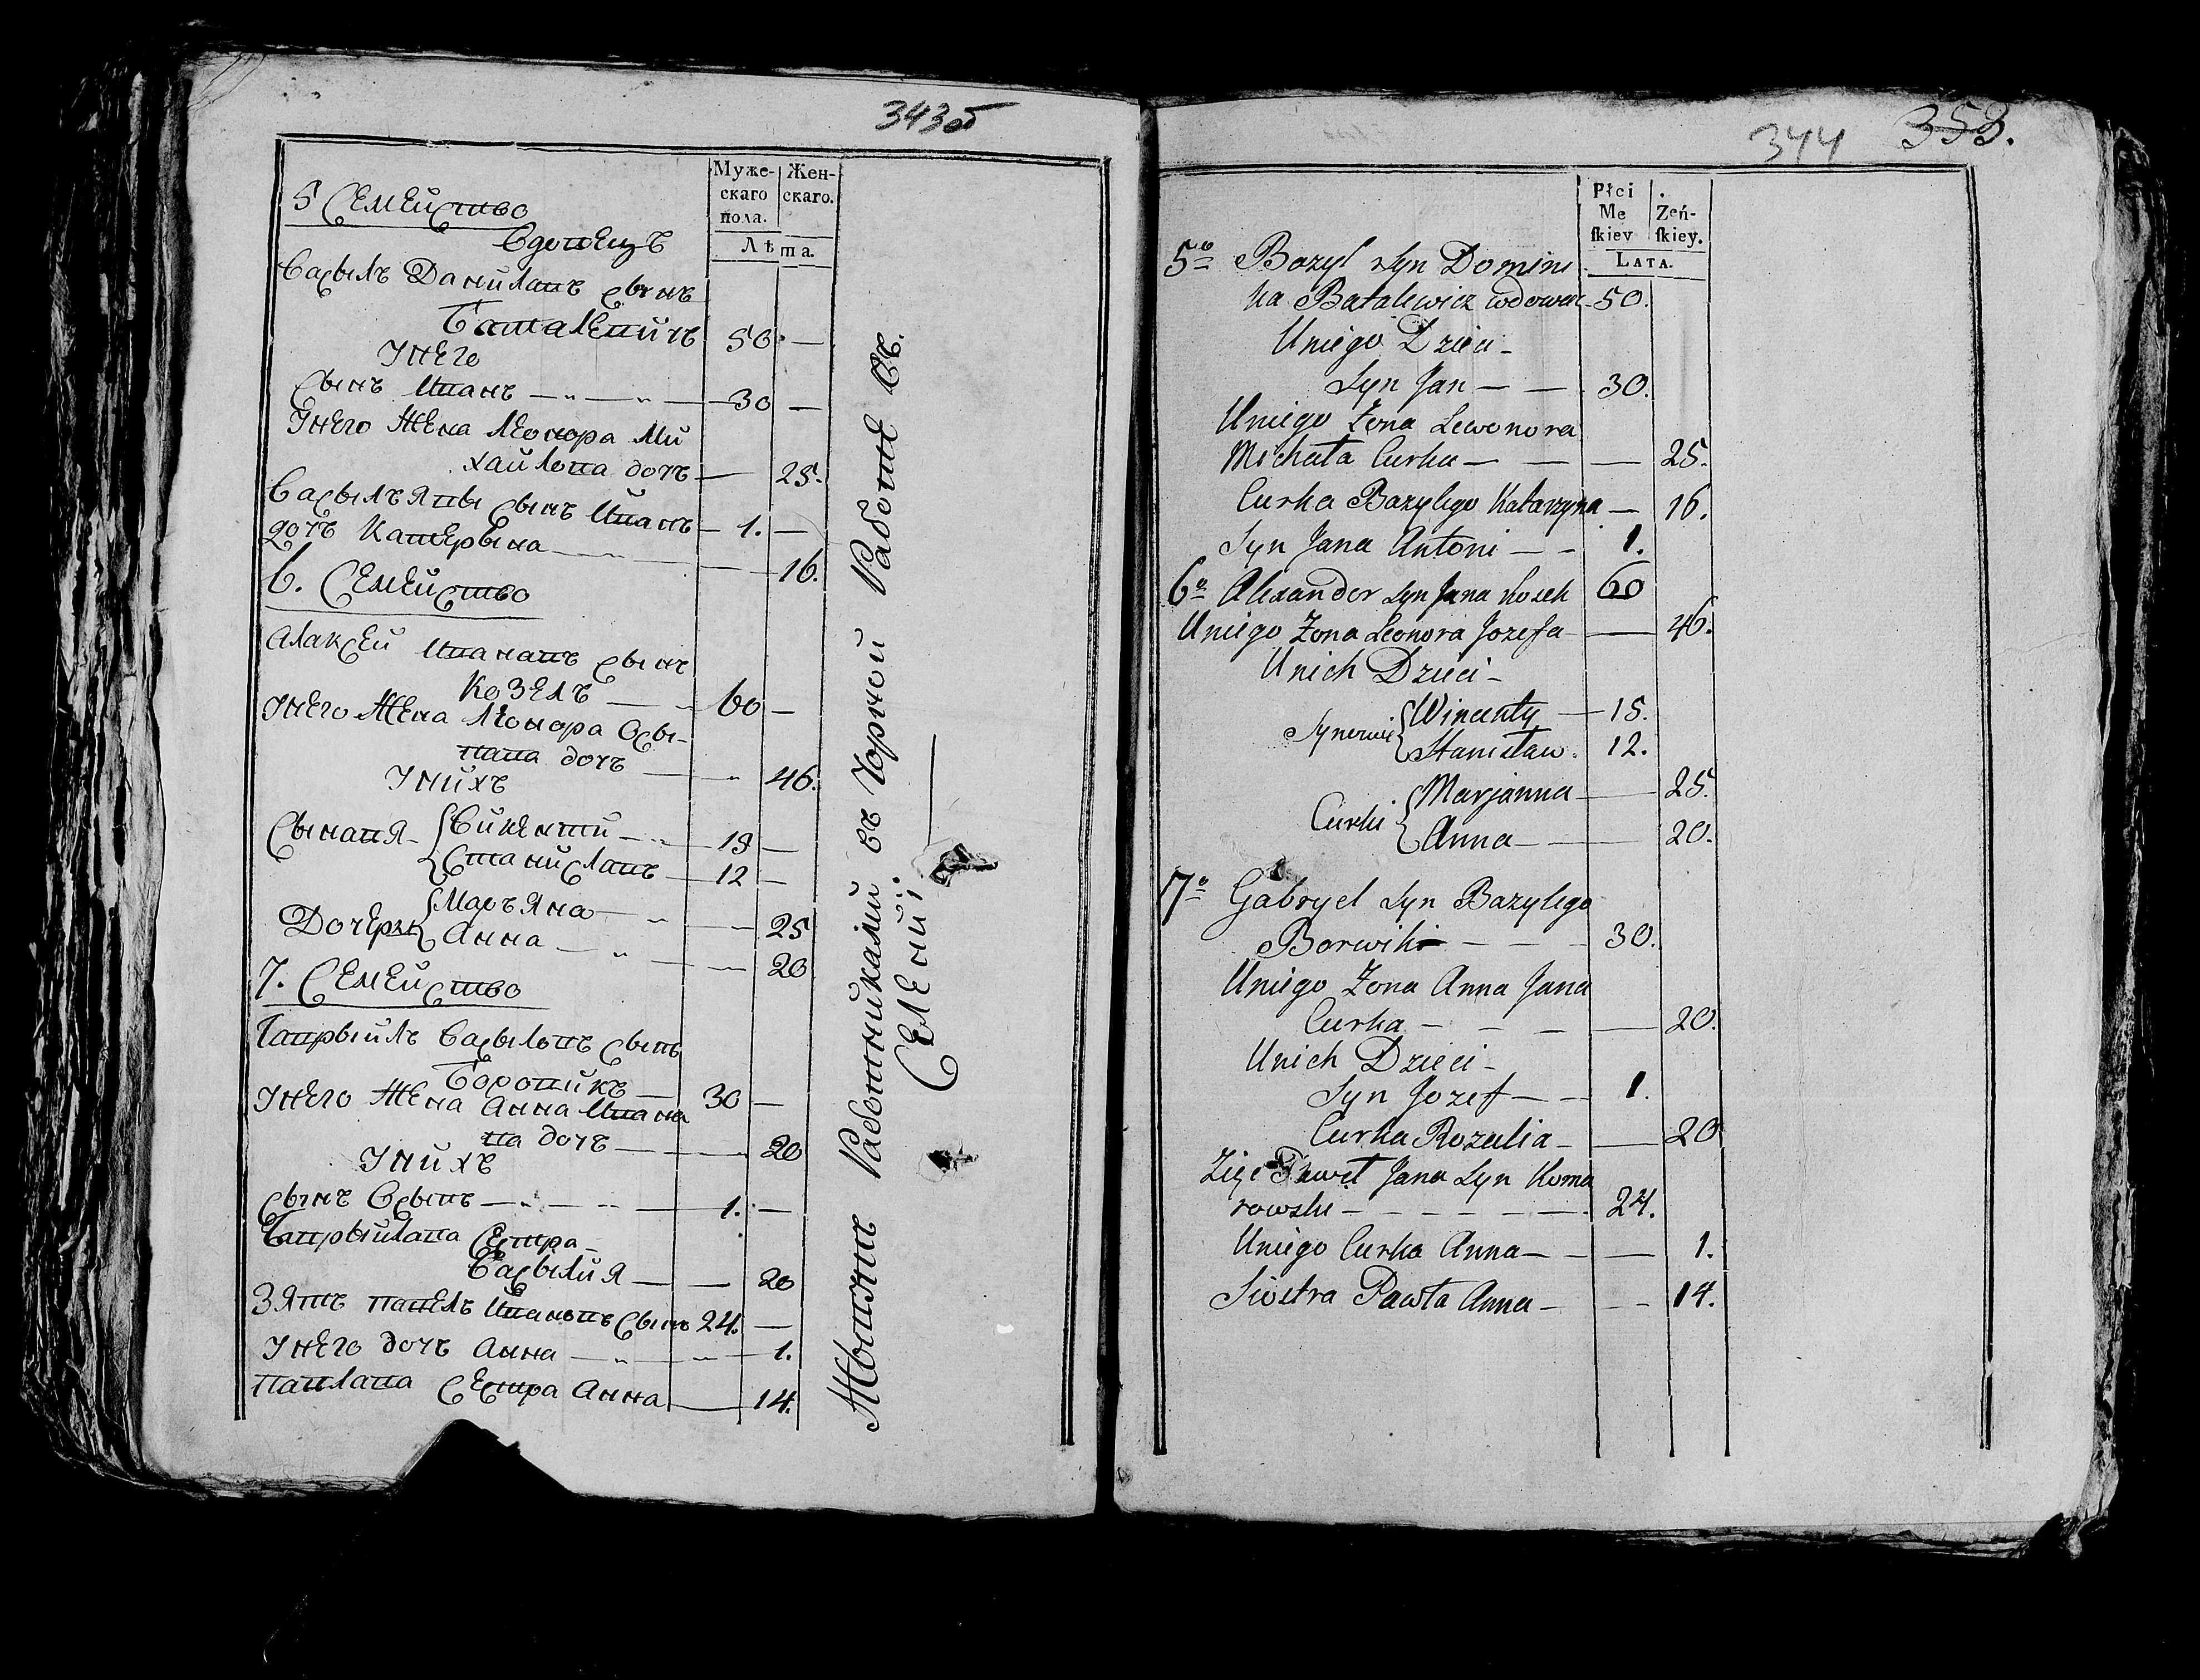 343 об
Муже-
скаго
пола.
Жен-
скаго.
Лѣта.
5 Семейство
Вдовецъ
Васылъ Данилавъ сынъ
Баталевичъ 50. —
Унего
Сынъ Иванъ — 30 —
Унего жена Леонора Ми
хайлова дочъ — 25.
Васылъявы сынъ Иванъ — 1. —
дочъ Катерына — 16.
6. Семейство
Алаксей Иванавъ сынъ
Козелъ — 60 —
Унего жена Леонора Осы-
пава дочъ — 46.
Унихъ
Сынавя { Викенти — 15 —
{ Станиславъ — 12 —
Дочеры { Маръяна — 25
{ Анна — 20
7. Семейство
Гаврыйлъ Васыловъ сынъ
Боровикъ — 30 —
Унего жена Анна Ивана
ва дочъ — 20
Унихъ
сынъ Осыпъ — 1. —
Гаврыйлава Сестра —
Васылия — 20
Зятъ Павелъ Ивановъ сынъ 24. —
Унего дочъ Анна — 1.
Павлава Сестра Анна — 14.
съ Чорной Работе въ.
Селении.
344 353.
Płci
Me
ſkiev
Zeń-
ſkiey.
LATA.
5o Bazyl Syn Domini
ka Batalewicz wdowiec 50.
Uniego Dzieci —
Syn Jan — — 30.
Uniego Zona Lewonora
Michała Curka — — — 25.
Curka Bazylego Katarzyna — 16.
Syn Jana Antoni — — 1.
6o Alexander Syn Jana Kozek 60
Uniego Zona Leonora Jozefa — 46.
Unich Dzieci —
Synowie { Wincenty — 15.
{ Stanisław. 12.
Curki { Marjanna — 25.
{ Anna — — 20.
7o Gabryel Syn Bazylego
Borwik — — — 30.
Uniego Zona Anna Jana
Curka — — — — 20.
Unich Dzieci —
Syn Jozef — — 1.
Curka Rozalia — — 20
Zięc Paweł Jana Syn Koma
rowski — — — — — 24.
Uniego Curka Anna — — — 1.
Siostra Pawła Anna — — — 14.